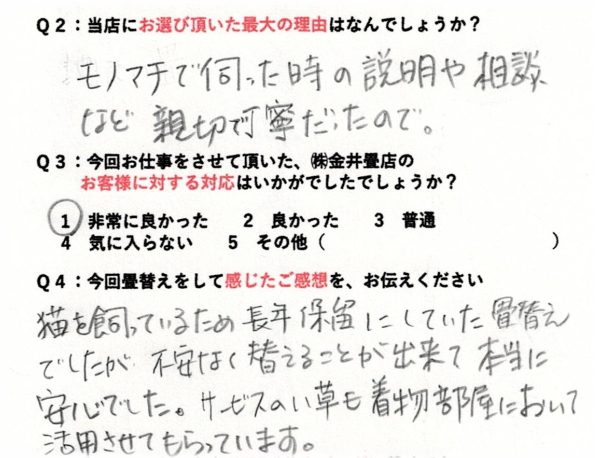 Q2：当店にお選び頂いた最大の理由はなんでしょうか？
モノマチで伺った時の説明や相談
など親切で丁寧だったので。
Q3：今回お仕事をさせて頂いた、㈱金井畳店の
お客様に対する対応はいかがでしたでしょうか？
1 非常に良かった 2 良かった 3 普通
4 気に入らない 5 その他（ ）
Q4：今回畳替えをして感じたご感想を、お伝えください
猫を飼っているため長年保留にしていた畳替え
でしたが、不安なく替えることが出来て本当に
安心でした。サービスのい草も着物部屋において
活用させてもらっています。